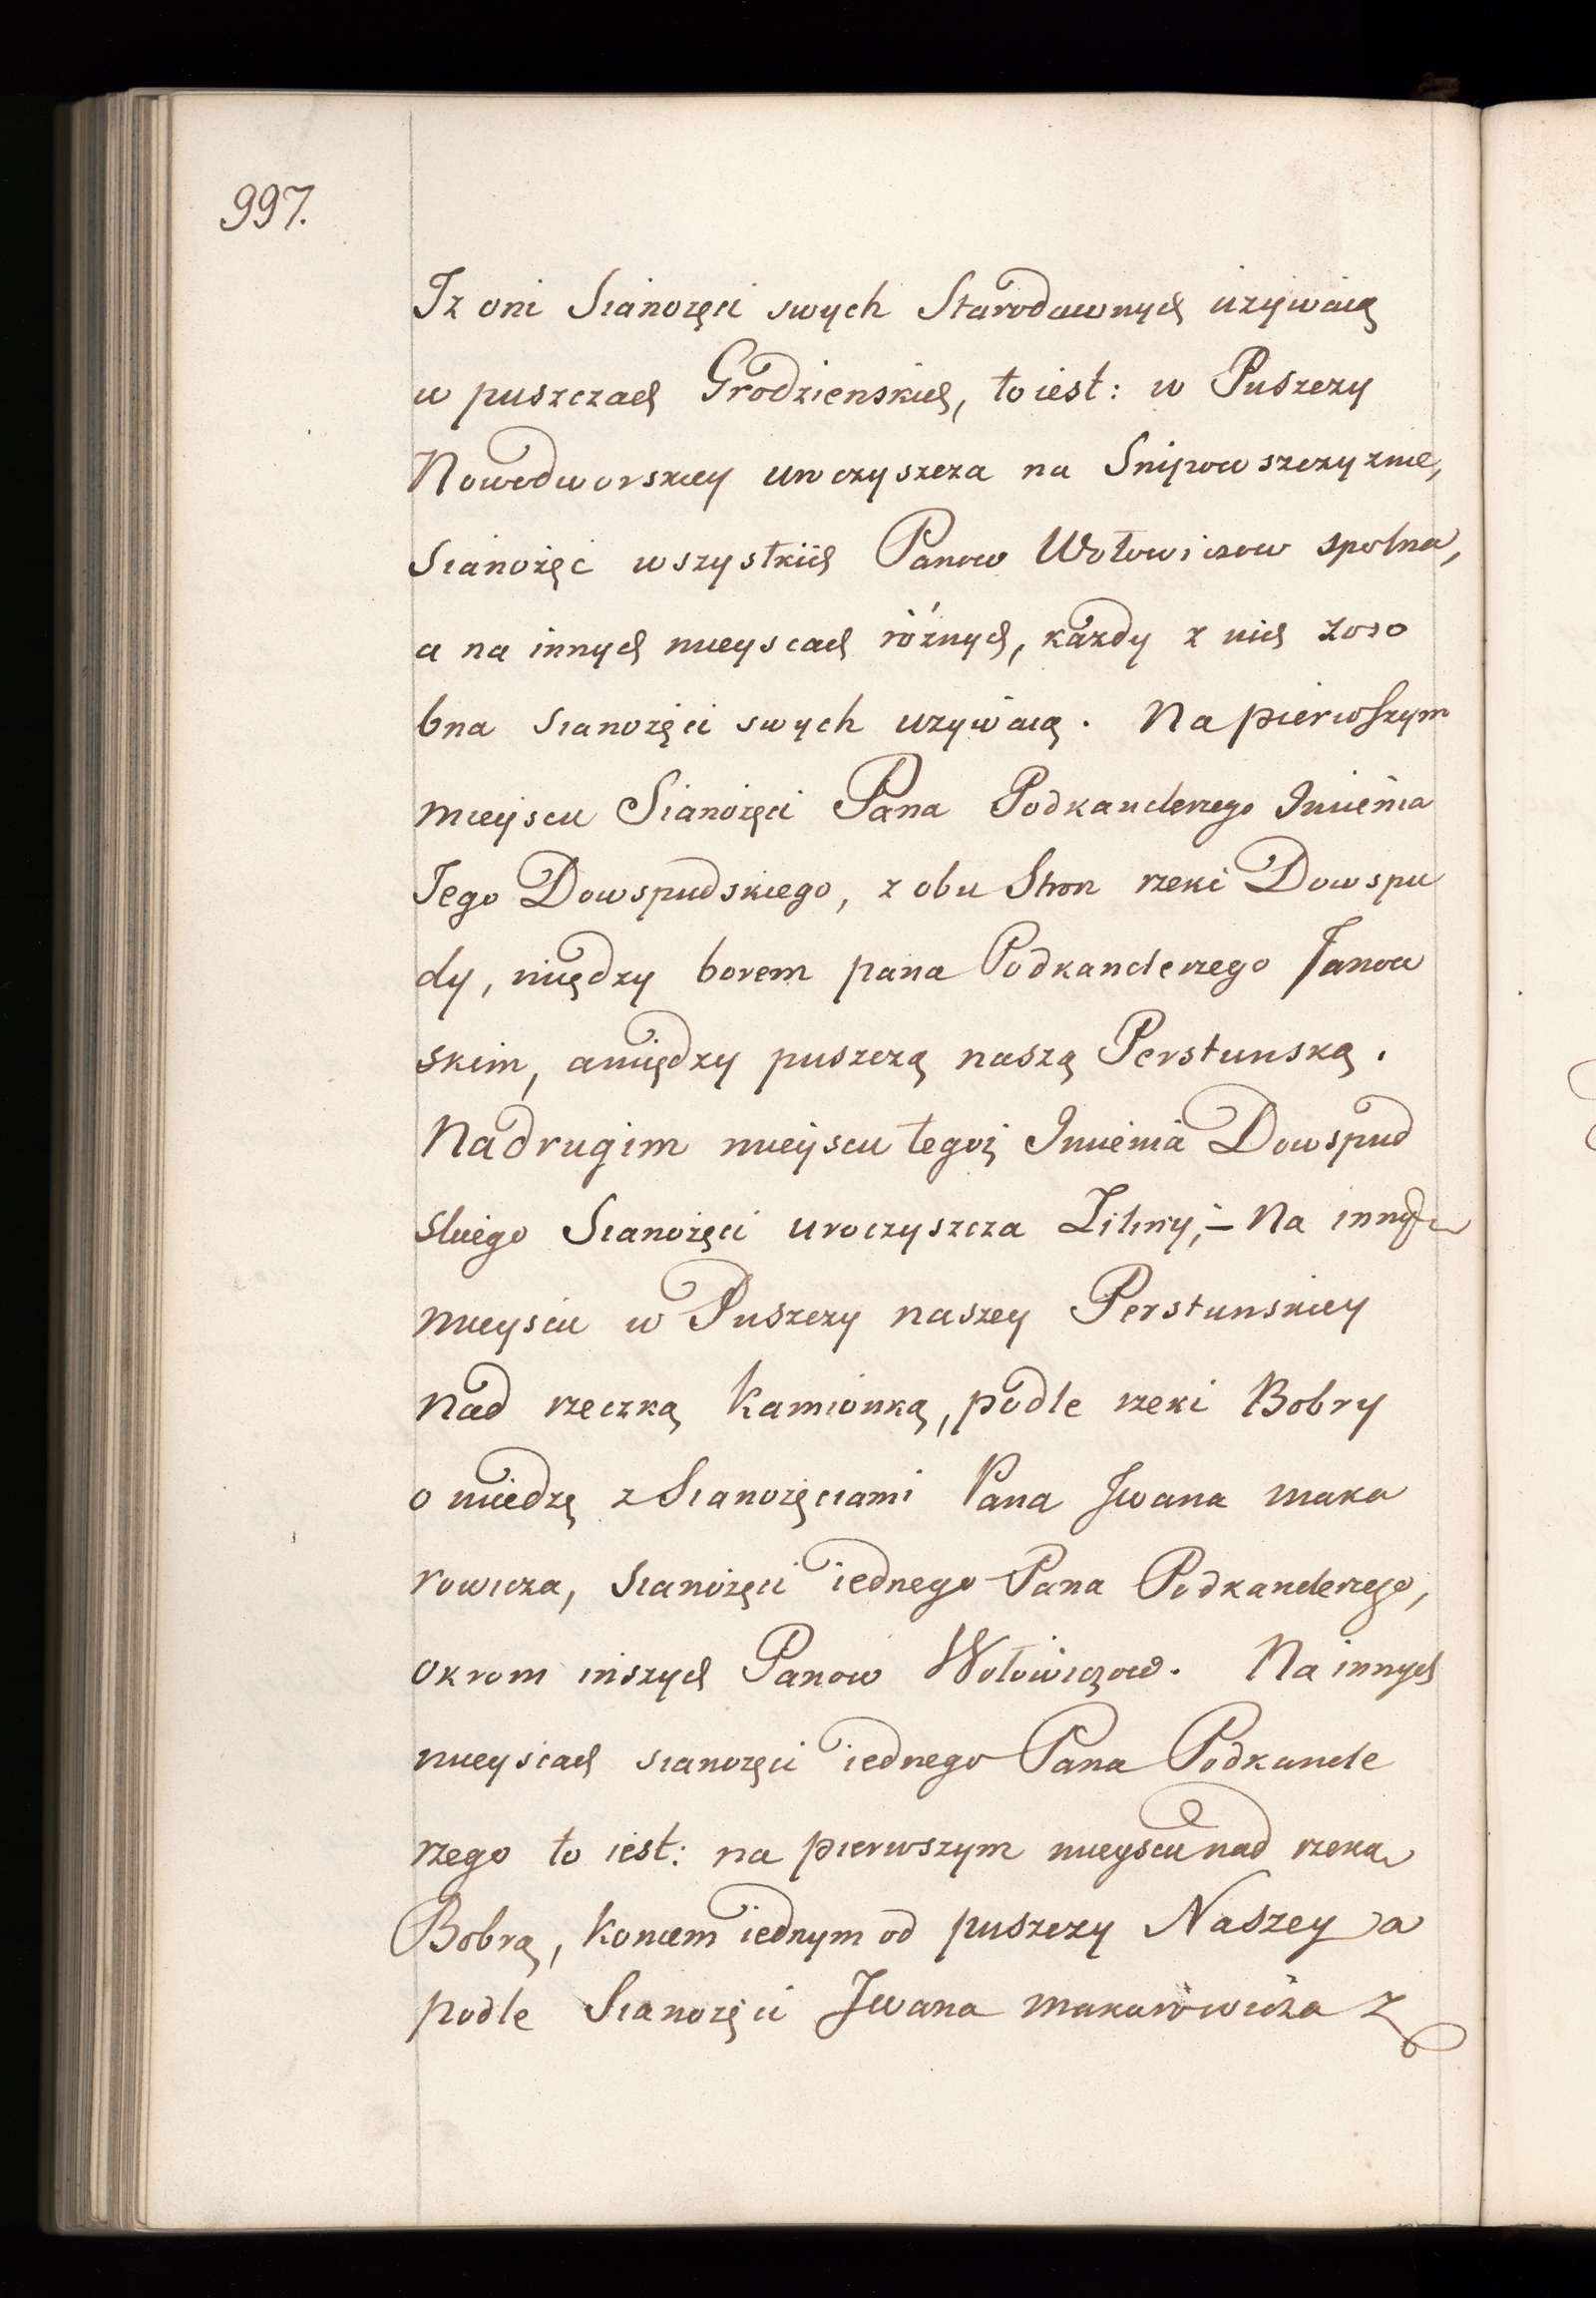 997.
Iz oni Sianożęci swych Starodawnych używaią
w puszczach Grodzienskich, to iest: w Puszczy
Nowodworskiey uroczyszcza na Snipowszczyznie,
Sianożęć wszystkich Panow Wołowiczow spolna,
a na innych mieyscach różnych, każdy z nich zoso
bna sianożęci swych uzywaią. Na pierwszym
mieyscu Sianożęci Pana Podkanclerzego Imienia
Jego Dowspudskiego, z obu Stron rzeki Dowspu
dy, między borem pana Podkanclerzego Janow
skim, amiędzy puszczą naszą Perstunską.
Na drugim mieyscu tegoż Imienia Dowspud
skiego Sianożęci uroczyszcza Żiliny, – Na innym
mieyscu w Puszczy naszey Perstunskiey
nad rzeczką Kamionką, podle rzeki Bobry
o miedzę z Sianożęciami Pana Jwana maka
rowicza, sianożęci iednego Pana Podkanclerzego,
okrom inszych Panow Wołowiczow. Na innych
mieyscach sianożęci iednego Pana Podkancle
rzego to iest: na pierwszym mieyscu nad rzeka
Bobrą, koncem iednym od puszczy Naszey a
podle Sianożęci Jwana makarowicza z